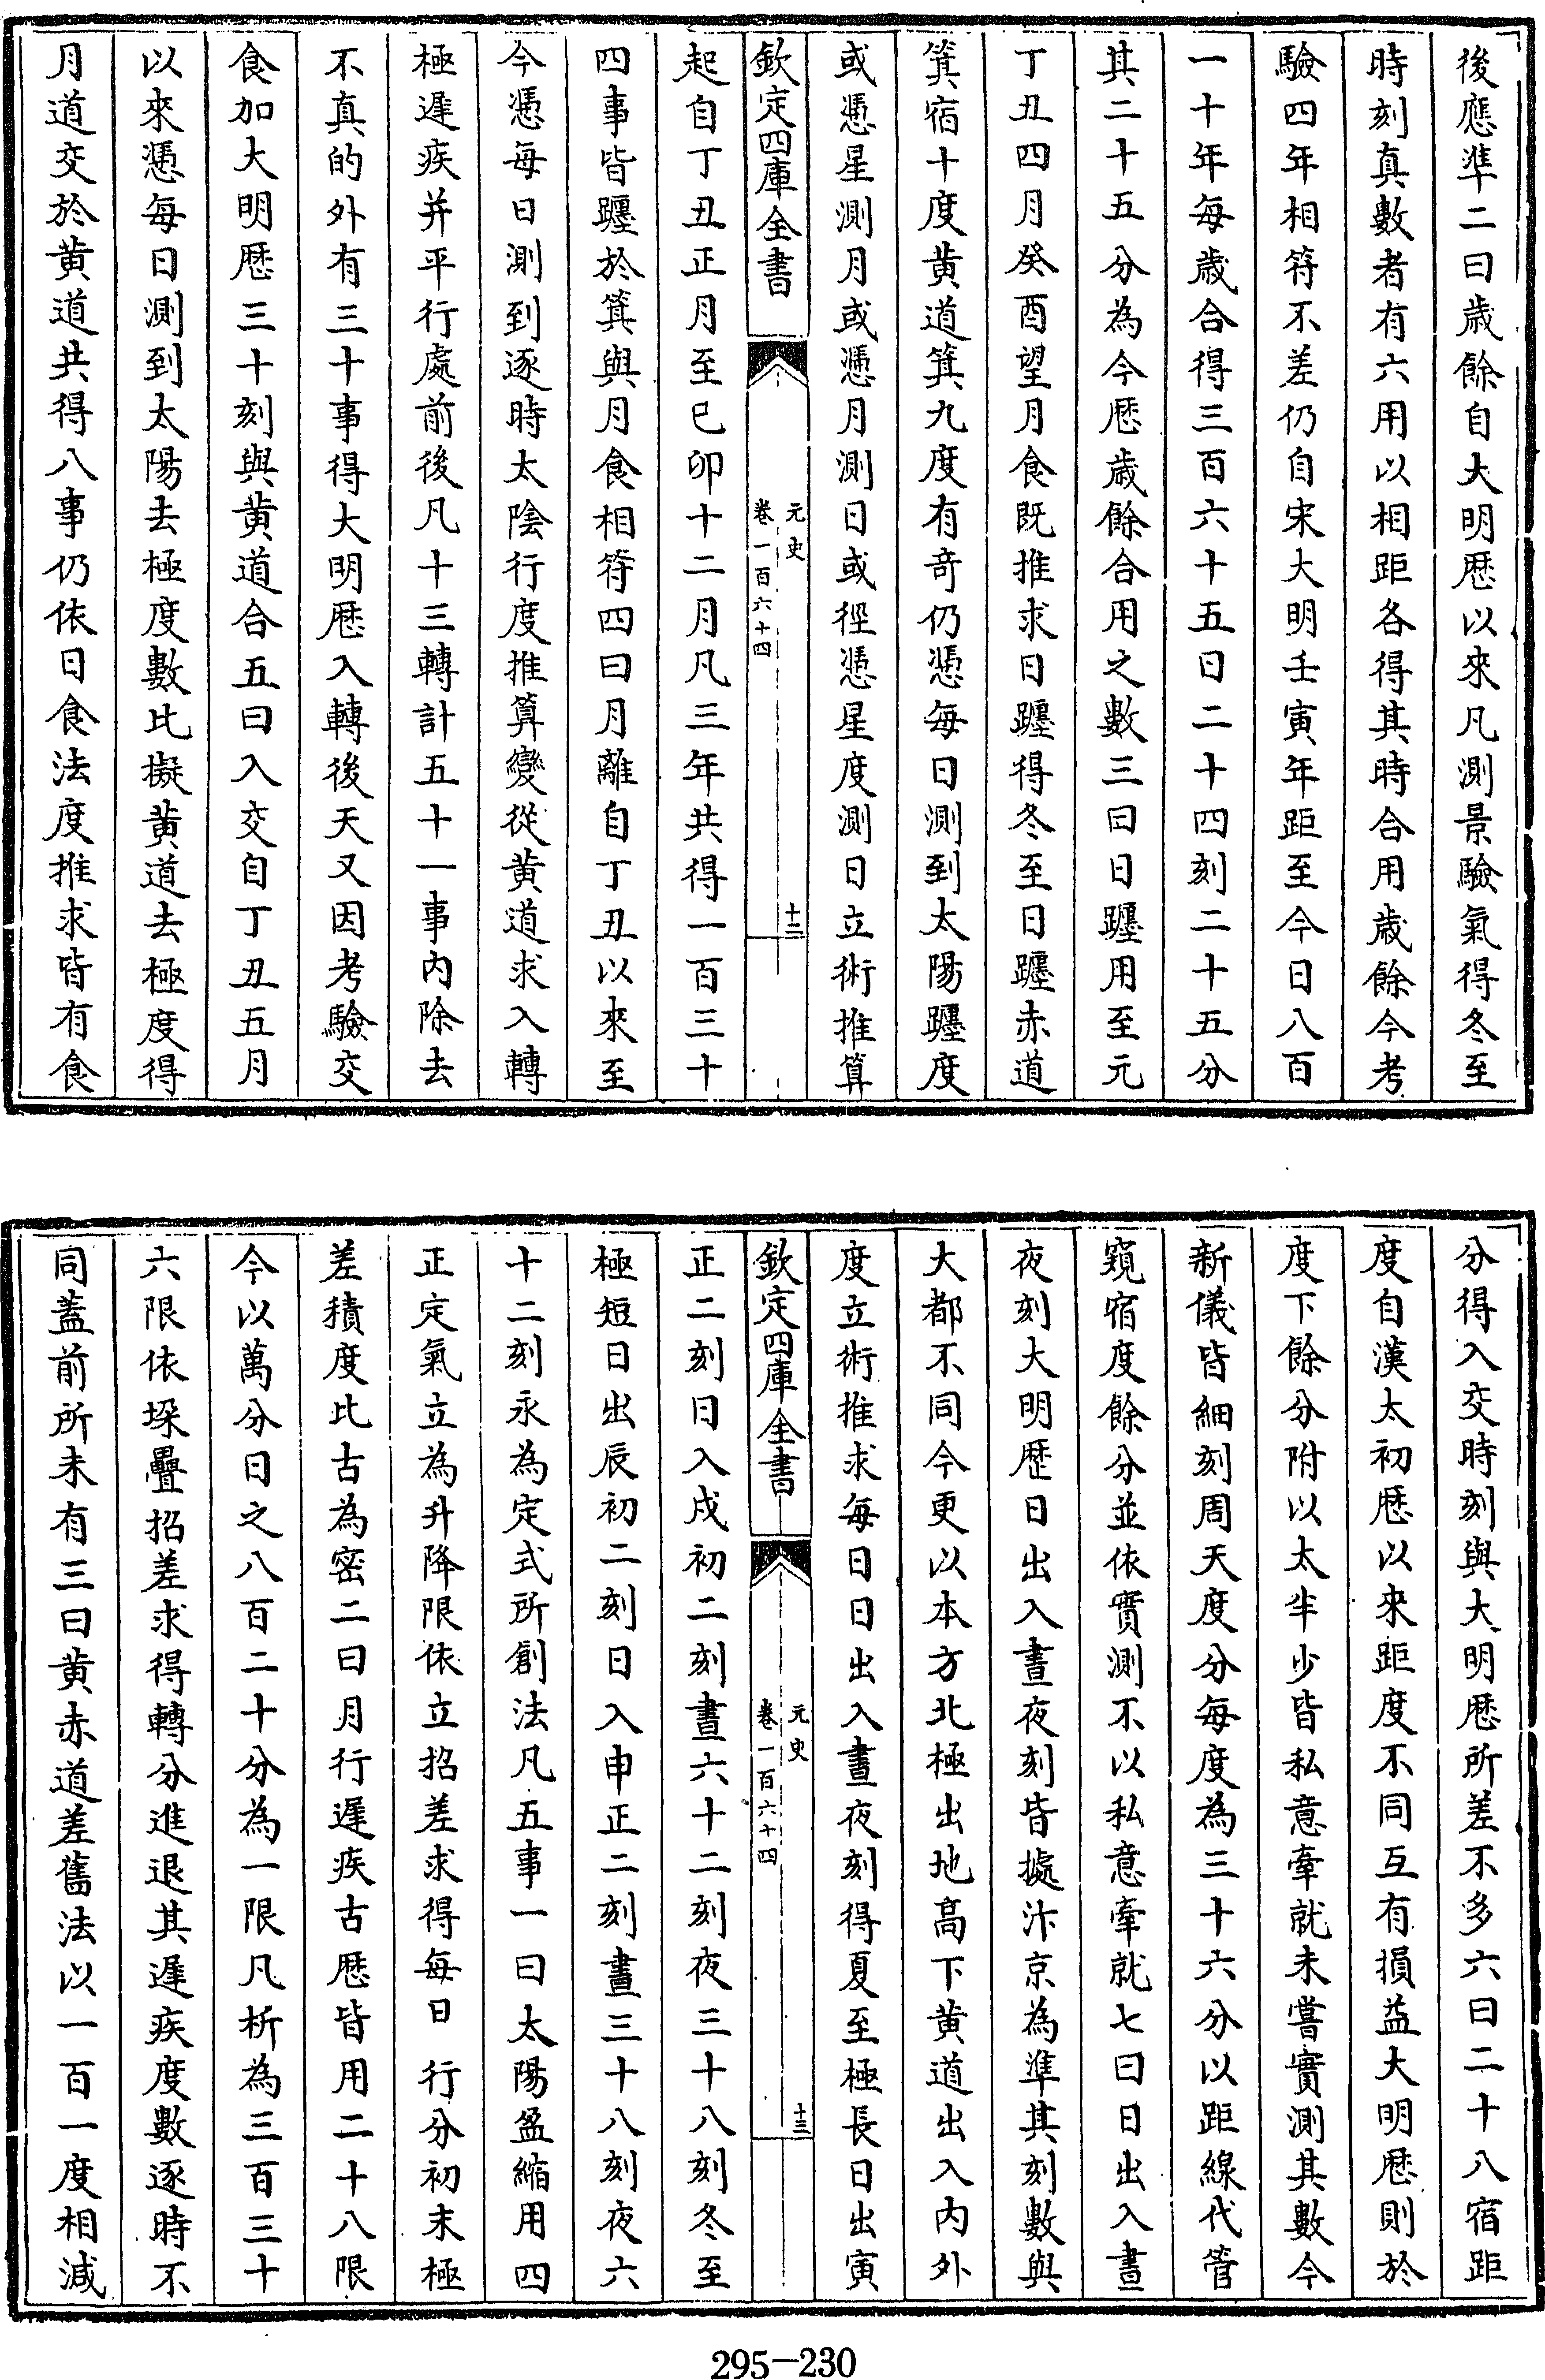 後應準二曰歳餘自大明厯以來凡測景驗氣得冬至
時刻真數者有六用以相距各得其時合用歳餘今考
驗四年相符不差仍自宋大明壬寅年距至今日八百
一十年每歳合得三百六十五日二十四刻二十五分
其二十五分為今厯歳餘合用之數三曰日躔用至元
丁丑四月癸酉望月食既推求日躔得冬至日躔赤道
箕宿十度黄道箕九度有竒仍憑每日測到太陽躔度
或憑星測月或憑月測日或徑憑星度測日立術推算
欽定四庫全書
元史
卷一百六十四
十二
起自丁丑正月至已卯十二月凡三年共得一百三十
四事皆躔於箕與月食相符四曰月離自丁丑以來至
今憑每日測到逐時太陰行度推算變從黄道求入轉
極遲疾并平行處前後凡十三轉計五十一事内除去
不真的外有三十事得大明厯入轉後天又因考驗交
食加大明厯三十刻與黄道合五曰入交自丁丑五月
以來憑每日測到太陽去極度數比擬黄道去極度得
月道交於黄道共得八事仍依日食法度推求皆有食
分得入交時刻與大明厯所差不多六曰二十八宿距
度自漢太初厯以來距度不同互有損益大明厯則於
度下餘分附以太半少皆私意牽就未嘗實測其數今
新儀皆細刻周天度分每度為三十六分以距線代管
窺宿度餘分並依實測不以私意牽就七曰日出入晝
夜刻大明歴日出入晝夜刻皆據汴京為準其刻數與
大都不同今更以本方北極出地高下黄道出入内外
度立術推求每日日出入晝夜刻得夏至極長日出寅
欽定四庫全書
元史
卷一百六十四
十三
正二刻日入戌初二刻晝六十二刻夜三十八刻冬至
極短日出辰初二刻日入申正二刻晝三十八刻夜六
十二刻永為定式所創法凡五事一曰太陽盈縮用四
正定氣立為升降限依立招差求得每日行分初末極
差積度比古為密二曰月行遲疾古厯皆用二十八限
今以萬分日之八百二十分為一限凡析為三百三十
六限依垛疊招差求得轉分進退其遲疾度數逐時不
同蓋前所未有三曰黄赤道差舊法以一百一度相減
295-230